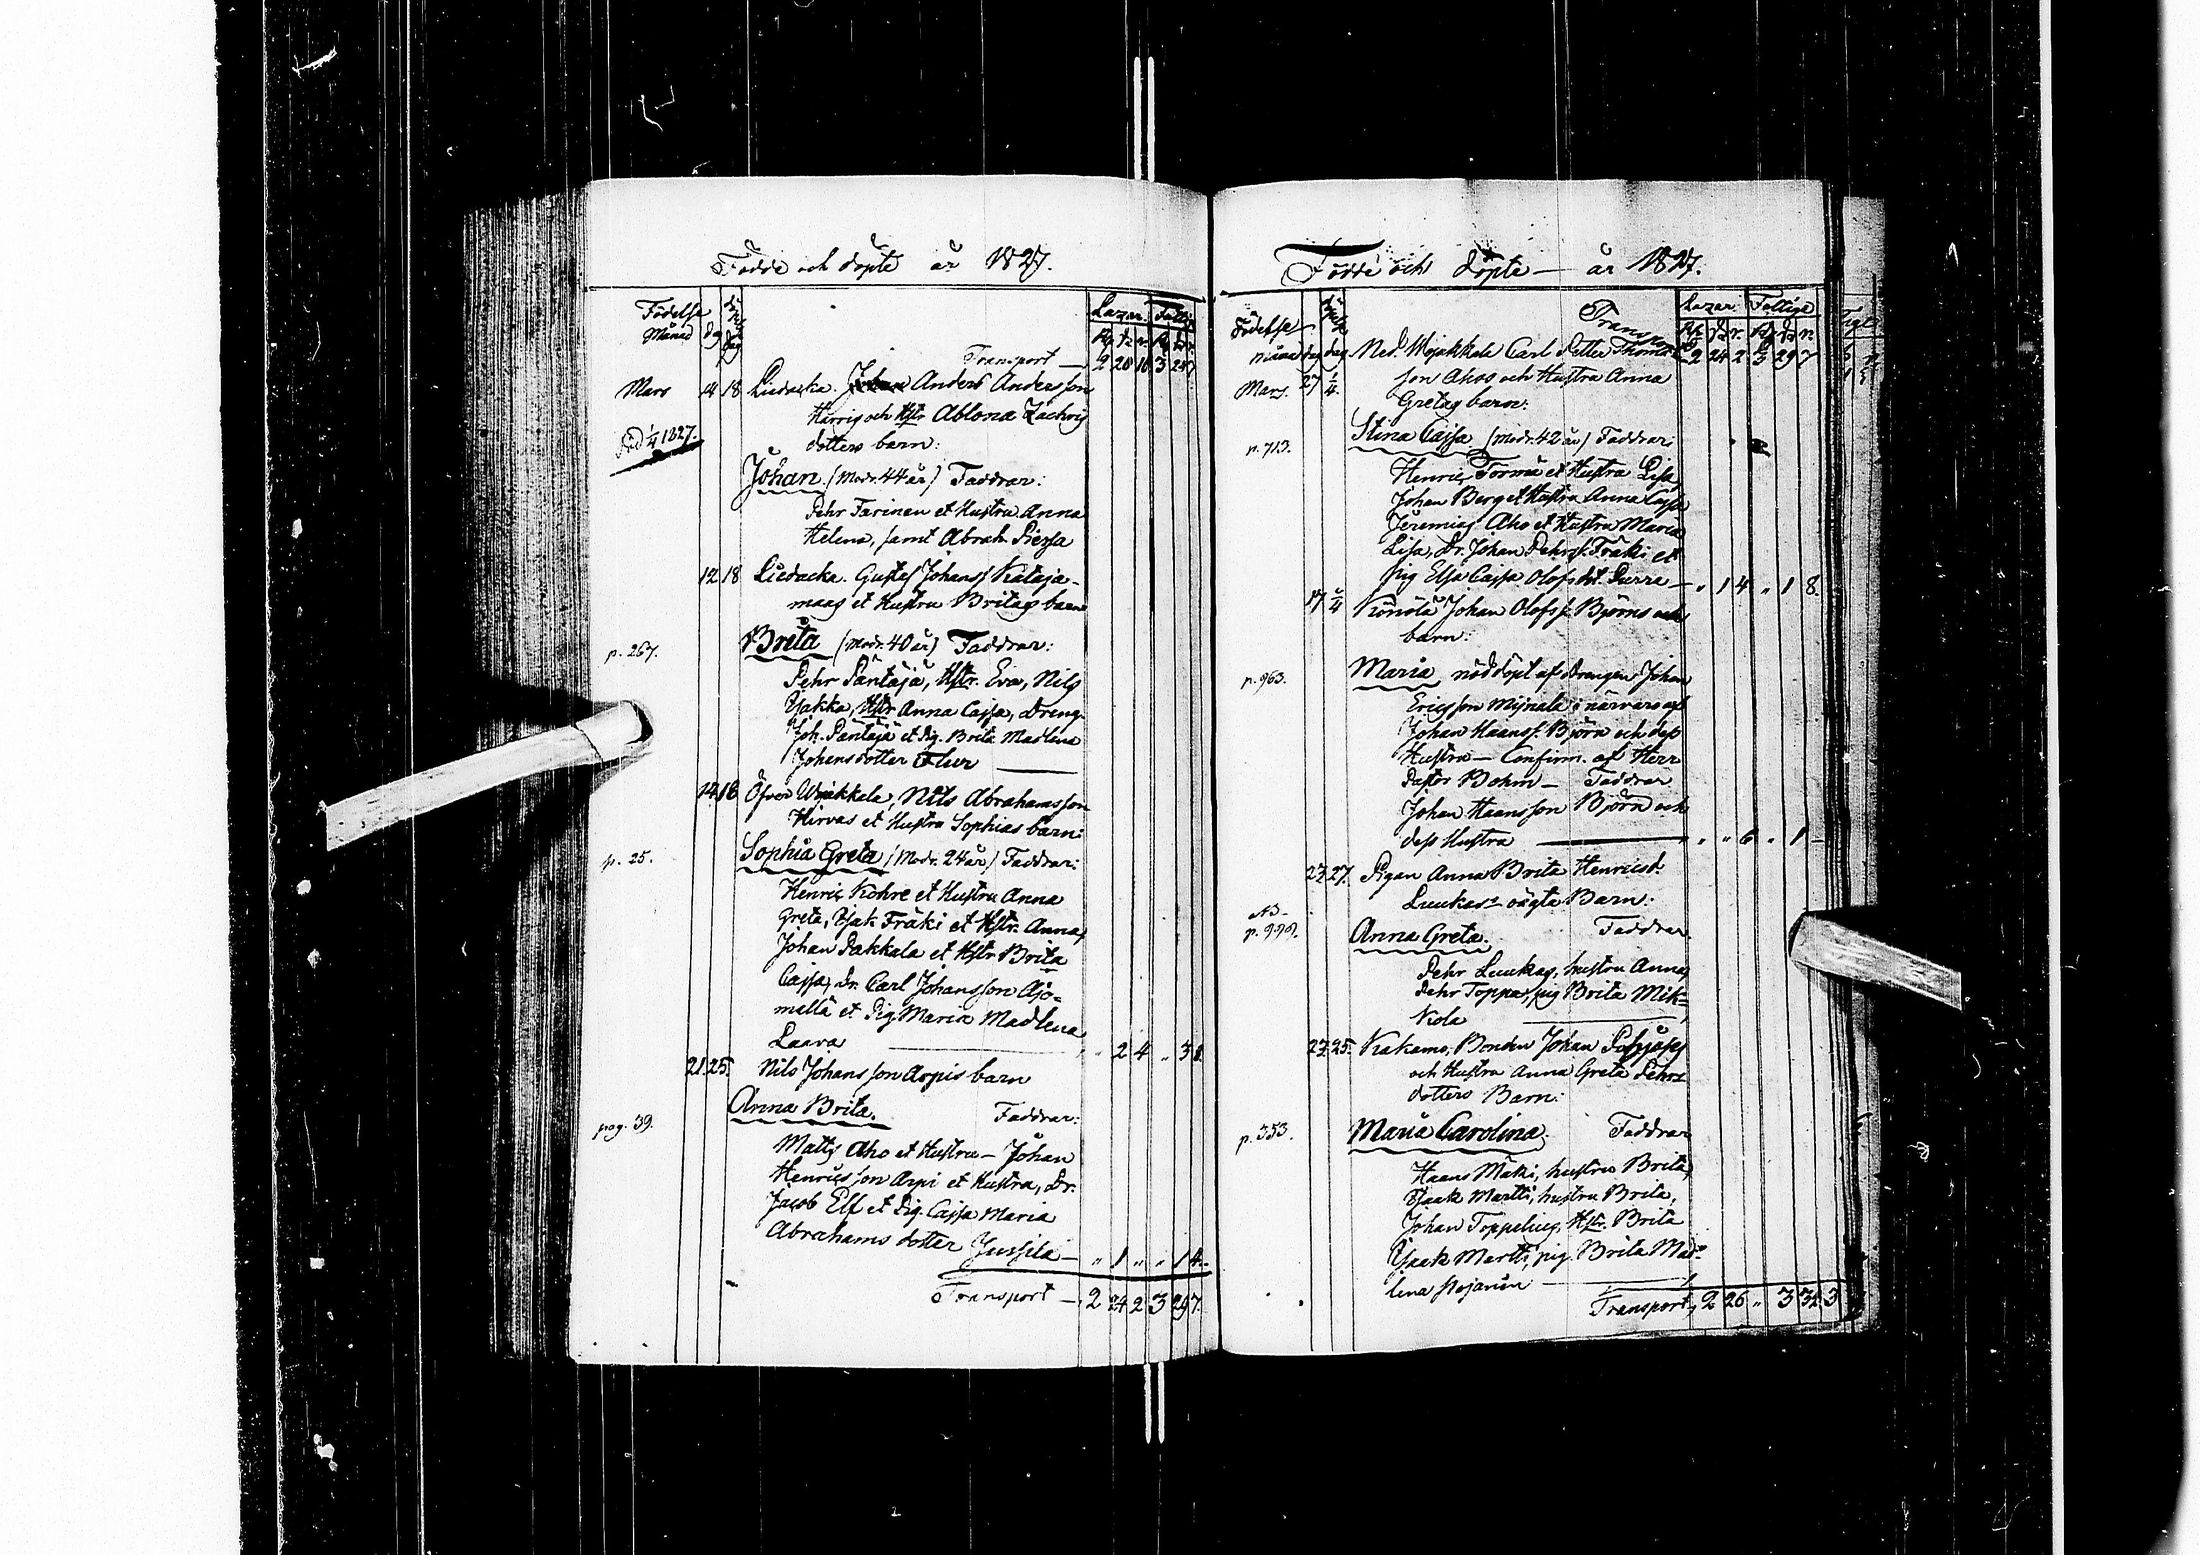 Födde och döpte år 1827.
Födelse
Månad dg
Lazar. Fattige
Transport — 2 20 10 3
Mars 14 18 Liedacka. Anders Andersson
Harrig och Hstr Ablona Zachris
död 1/4 1827.
dotters barn:
Johan (Modr. 44 år) Faddrar:
Pehr Farinen et Hustru Anna
Helena, samt Abrah. Piessa
12 18 Liedacka. Gustaf Johanss Kataja-
maas et Hustru Britas barn
p. 267. Brita (modr. 40 år) Faddrar:
Pehr Päntäjä, Hstr. Eva, Nils
Yakka, Hstr Anna Cajsa, Dreng.
Joh. Päntäjä et Pig. Brita Madlena
Johansdotter Flur —
14 18 Öfver Wojakkala, Nils Abrahamsson
Hirvas et Hustru Sophias barn:
p. 25. Sophia Greta (Modr. 24 år) Faddrar:
Henric Kohre et Hustru Anna
Greta, Isak Fräki et Hstr. Anna,
Johan Pakkala et Hstr Brita
Cajsa, Dr. Carl Johansson Ajo-
mella et Pig Maria Madlena
Laava — " 2 4 " 3 8
21. 25. Nils Johansson Arpis barn
pag. 39. Anna Brita. Faddrar:
Matts Aho et Hustru — Johan
Henricsson Arpi et Hustru, Dr.
Jacob Elf et Pig. Cajsa Maria
Abrahamsdotter Jussila — " 1 " " 1 4.
Transport — 2 24 2 3 29 7.
Födde och döpte — år 1827.
Födelse
månad dag dag
Lazar. Fattige
Transport
Ned. Wojakkala Carl Petter Thomas 2 24 2 3 29 7
Mars. 27 1/4. son Ahos och Hustru Anna
Gretas barn:
p. 713. Stina Cajsa (modr. 42 år) Faddrar:
Henric Tormä et Hustru Lisa,
Johan Berg et Hustru Anna Cajsa
Jeremias Aho et Hustru Maria
Lisa, Dr. Johan Pehrs. Fräki et
pig Elsa Cajsa Olofs dot. Purra — " 1 4 " 1 8.
17 Könölä Johan Olofss. Björns och
barn:
p. 963. Maria nöddöpt af drengen Johan
Ericsson Mynala i närvaro af
Johan Haanss. Björn och dess
Hustru — Confirm. af Herr
Pastor Bohm — Faddrar
Johan Haansson Björn och
dess Hustru — " " 6 " 1 —
23. 27. Pigan Anna Brita Henricsd.
Luukas oägta Barn:
NB.
p. 999. Anna Greta. Faddrar.
Pehr Luukas, hustru Anna,
Pehr Toppar, pig Brita Mik=
kola —
23. 25. Kakamo, Bonden Johan
och Hustru Anna Greta Pehrs
dotters Barn:
p. 353. Maria Carolina. Faddrar
Haans Mäki, hustru Brita,
Isaak Martti, hustru Brita,
Johan Toppelius, Hstr. Brita
Isaak Martti, pig. Brita Mad=
lena —
Transport, 2 26 " 3 32 3